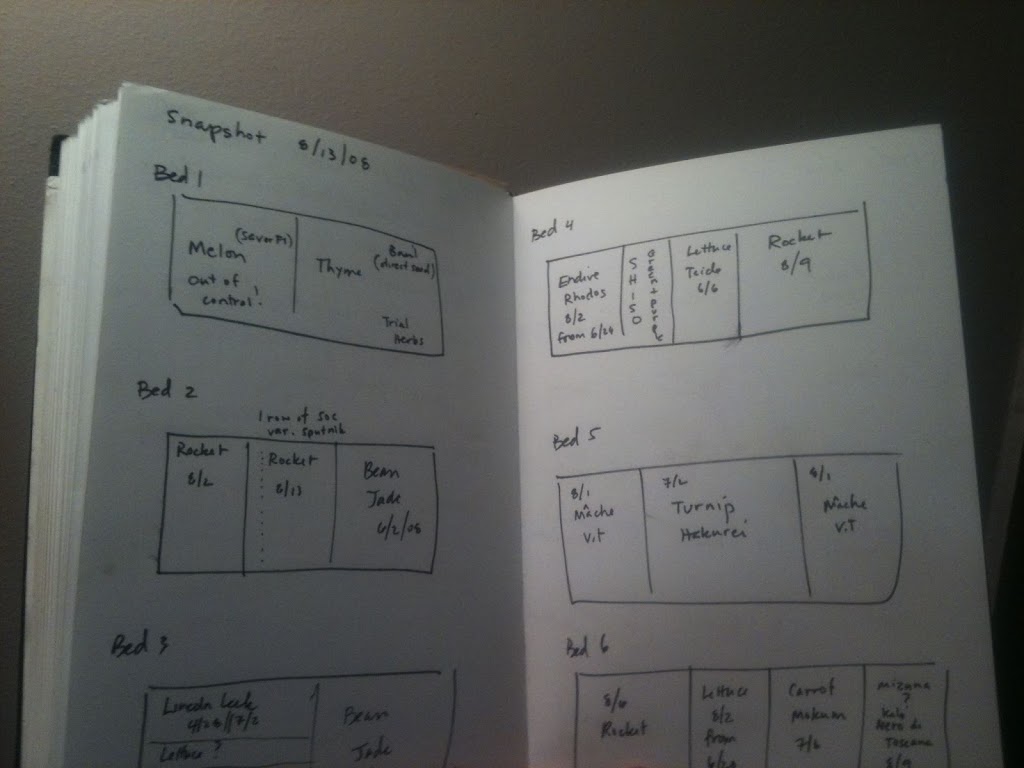 Snapshot 8/13/08
Bed 1
Melon
(Savor P1)
out of
control!
Thyme
(direct seed)
Trial
Herbs
Bed 2
1 row of
var. Sputnik
Rocket
8/2
Rocket
8/13
Bean
Jade
6/2/08
Bed 3
Lincoln Leek
4/28 // 7/2
Lettuce ?
Bean
Jade
Bed 4
Endive
Rhodos
8/2
from 6/24
SHISO
green + purple
Lettuce
6/6
Rocket
8/9
Bed 5
8/1
Mâche
V.T
7/2
Turnip
Hakurei
8/1
Mâche
V.T
Bed 6
8/6
Rocket
Lettuce
8/2
from
Carrot
Mokum
7/6
mizuna
?
Kale
Nero di
Toscana
8/9